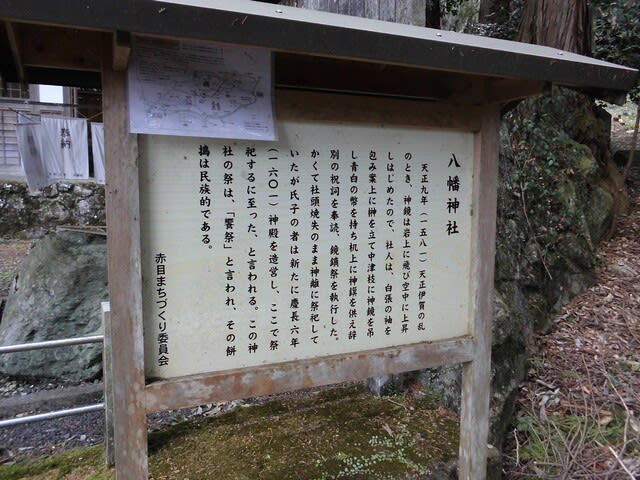 八幡神社
天正九年(一五八一)天正伊賀の乱
のとき、神鏡は岩上に飛び空中に上昇
しはじめたので、社人は、白張の袖を
包み案上に榊を立て中津枝に神鏡を吊
し青白の幣を持ち机上に神饌を供え辞
別の祝詞を奉読、鏡鎮祭を執行した。
かくて社頭焼失のまま神離に祭祀して
いたが氏子の者は新たに慶長六年
(一六〇一)神殿を造営し、ここで祭
祀するに至った、と言われる。この神
社の祭は、「饗祭」と言われ、その餅
搗は民族的である。
赤目まちづくり委員会
奉納